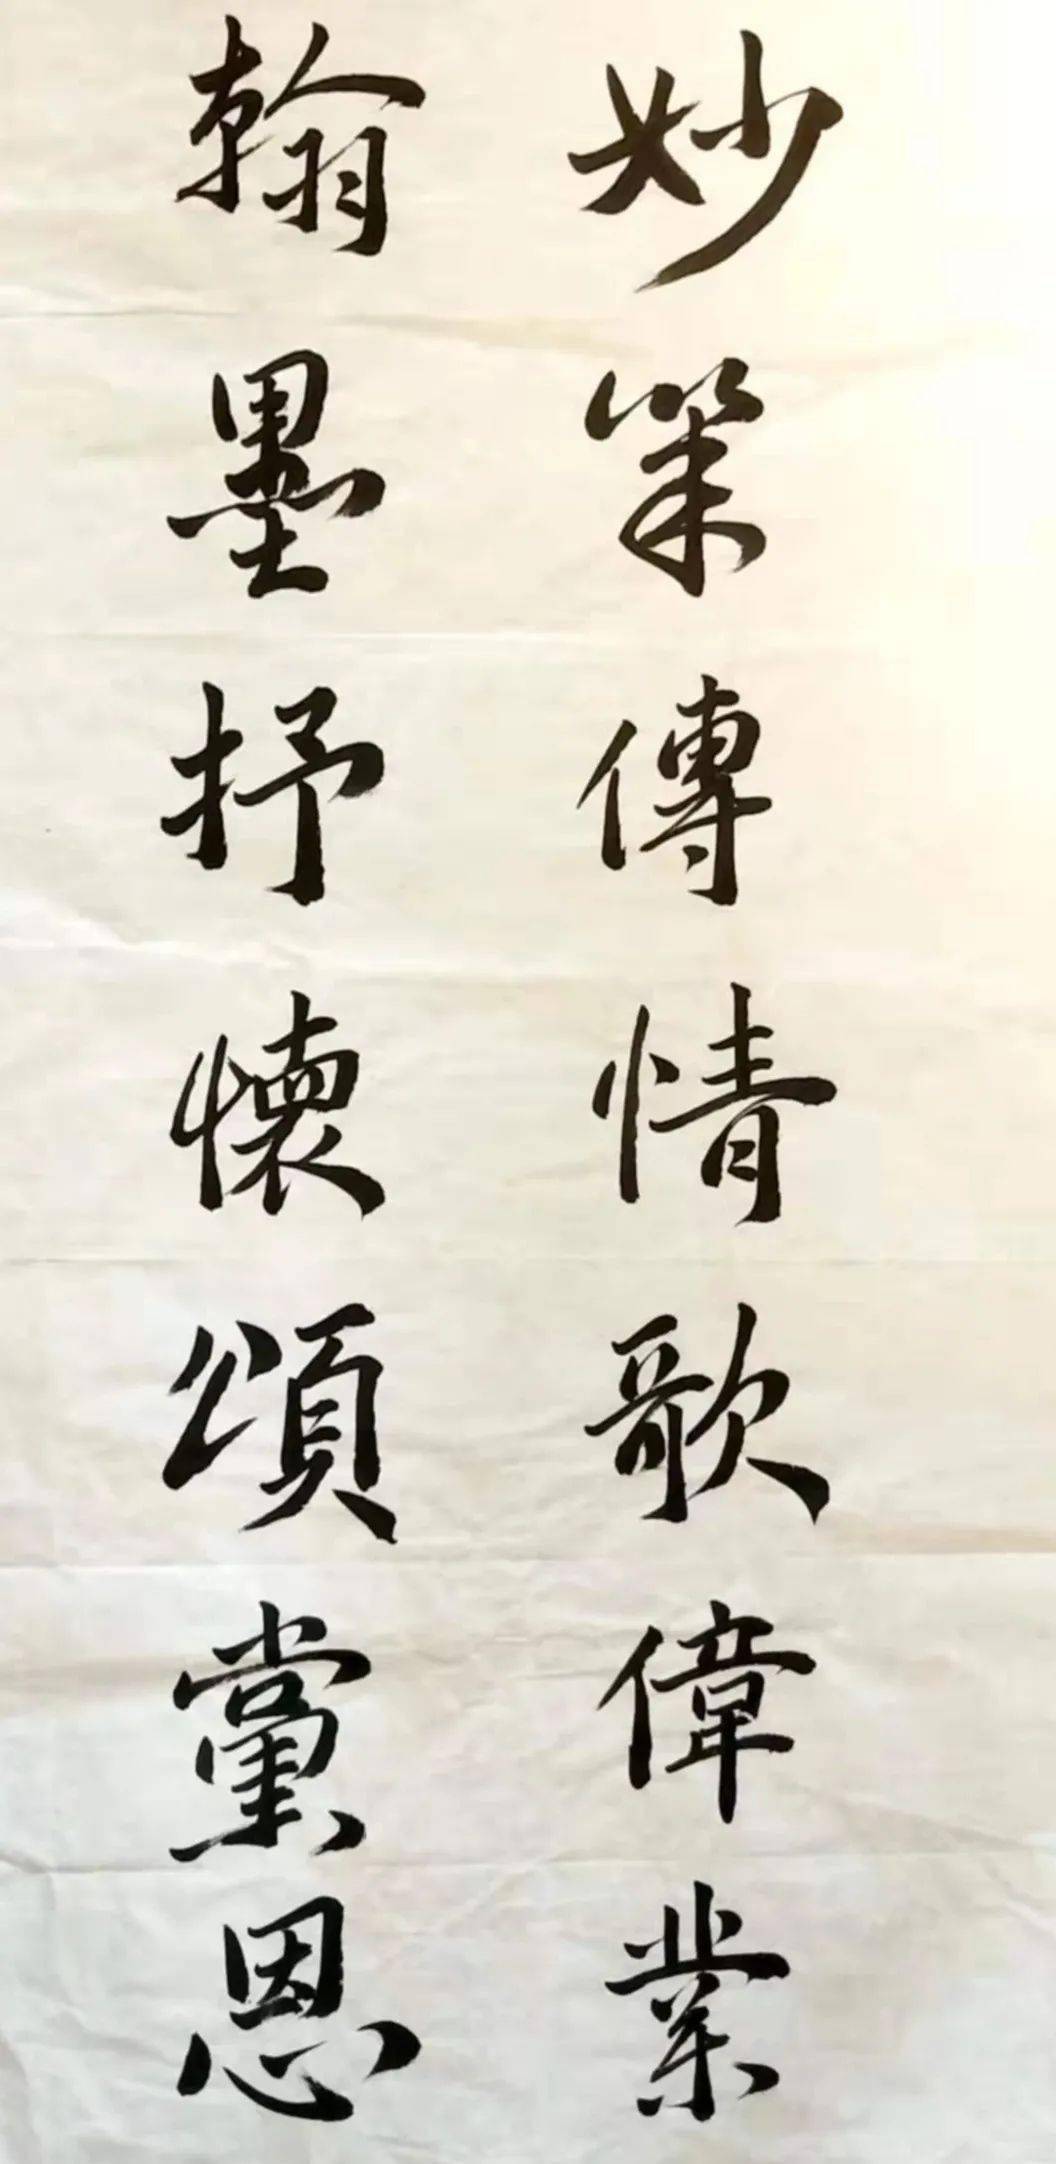 妙策傳情歌偉業
翰墨抒懷頌黨恩